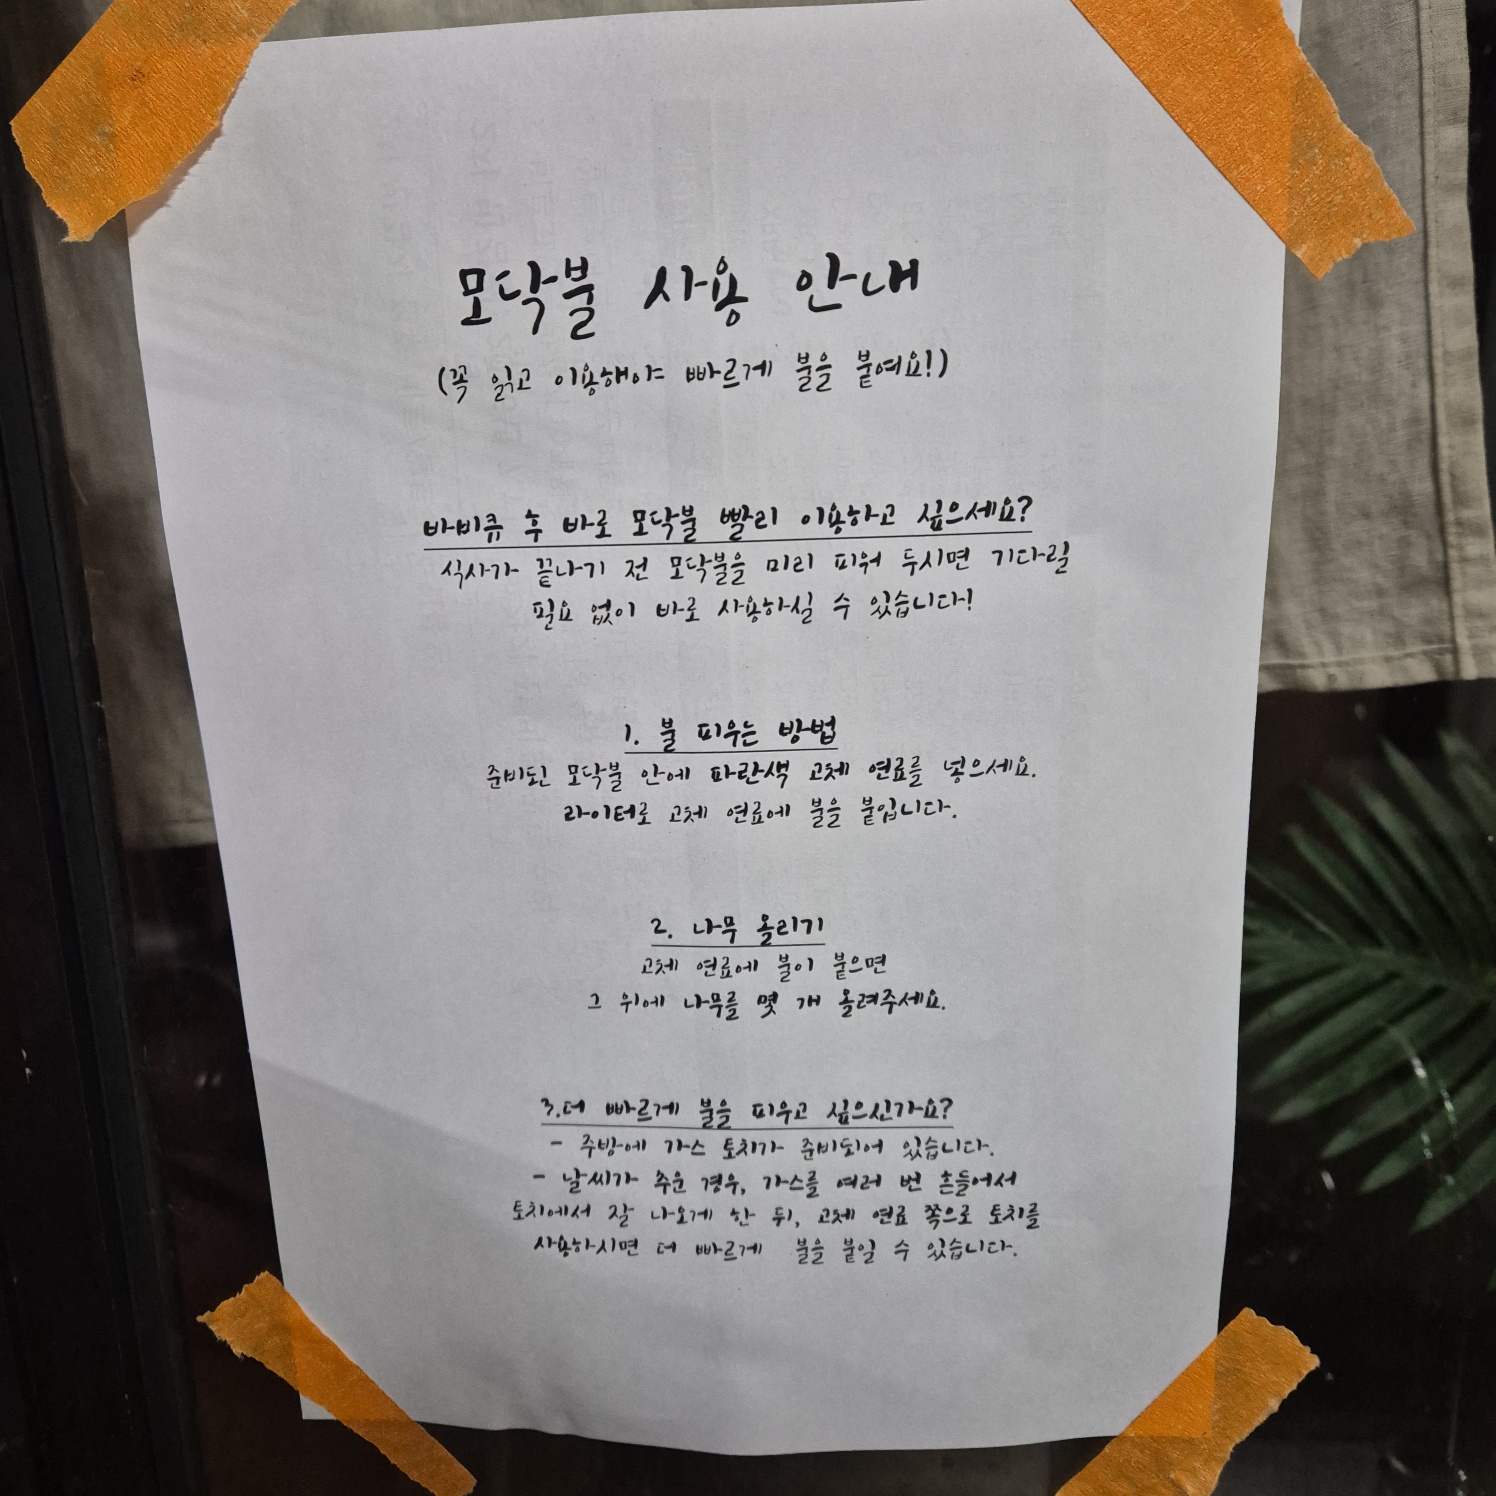 모닥불 사용 안내
(꼭 읽고 이용해야 빠르게 불을 붙여요!)
바비큐 후 바로 모닥불 빨리 이용하고 싶으세요?
식사가 끝나기 전 모닥불을 미리 피워 두시면 기다릴
필요 없이 바로 사용하실 수 있습니다!
1. 불 피우는 방법
준비된 모닥불 안에 파란색 고체 연료를 넣으세요.
라이터로 고체 연료에 불을 붙입니다.
2. 나무 올리기
고체 연료에 불이 붙으면
그 위에 나무를 몇 개 올려주세요.
3.더 빠르게 불을 피우고 싶으신가요?
- 주방에 가스 토치가 준비되어 있습니다.
- 날씨가 추운 경우, 가스를 여러 번 흔들어서
토치에서 잘 나오게 한 뒤, 고체 연료 쪽으로 토치를
사용하시면 더 빠르게 불을 붙일 수 있습니다.